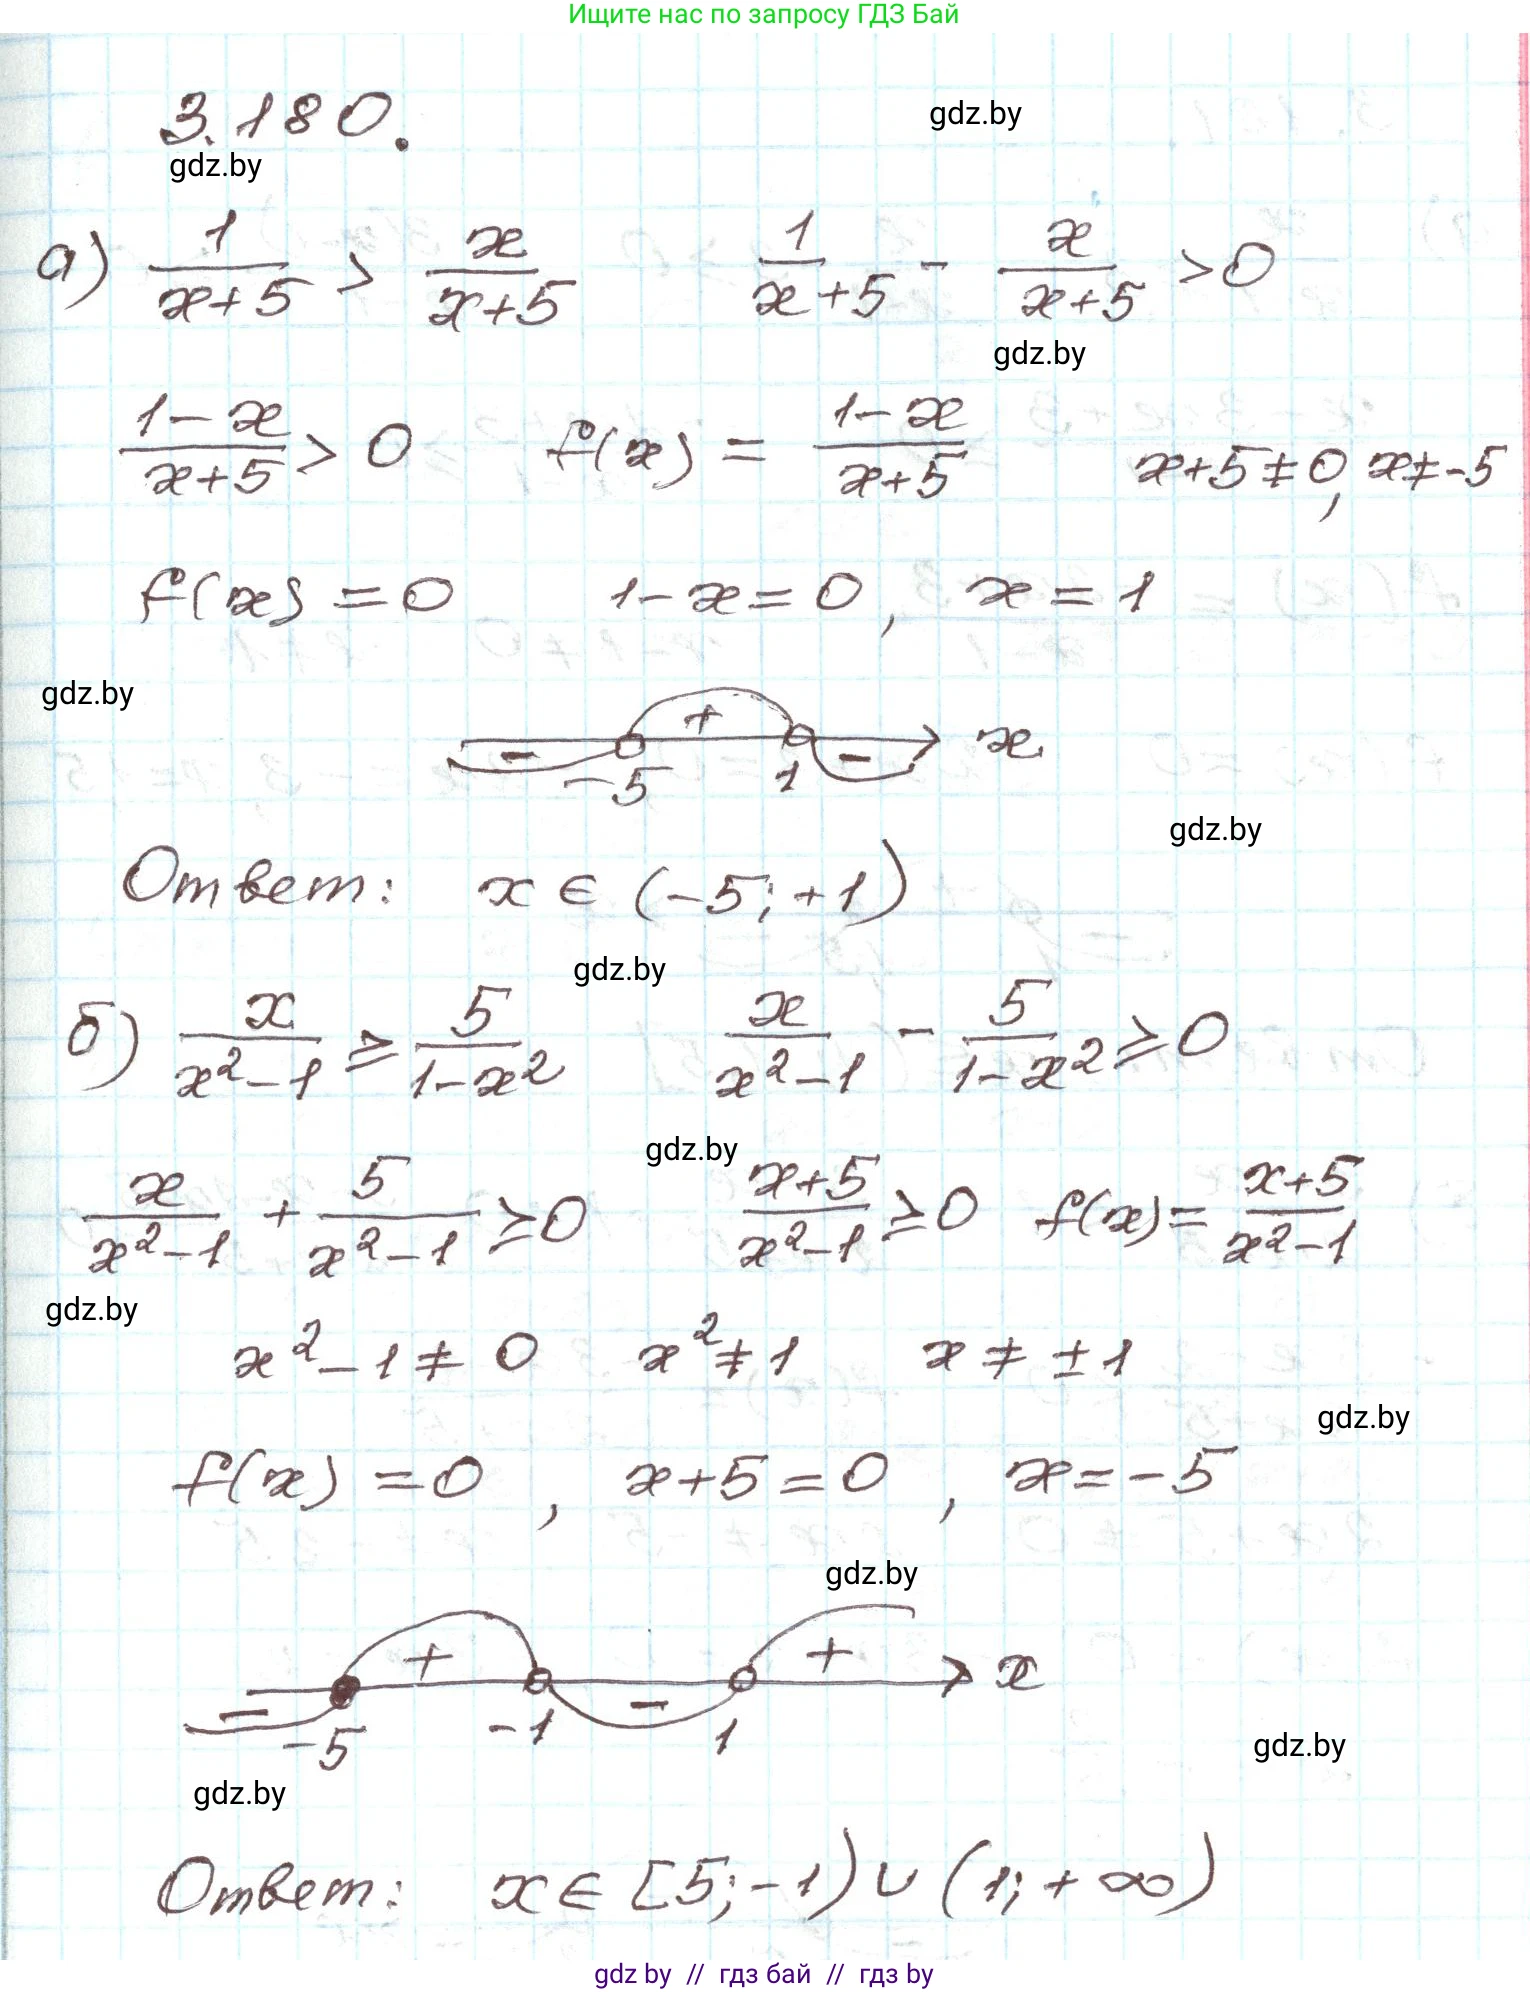 Ищите нас по запросу ГДЗ Бай
3.180.
gdz.by
gdz.by
а) 1/(x+5) > x/(x+5)   1/(x+5) - x/(x+5) > 0
gdz.by
(1-x)/(x+5) > 0   f(x) = (1-x)/(x+5)   x+5≠0, x≠-5
f(x) = 0   1-x=0, x=1
gdz.by
- + - x
-5 1
gdz.by
Ответ: x ∈ (-5; +1)
gdz.by
б) x/(x²-1) ≥ 5/(1-x²)   x/(x²-1) - 5/(1-x²) ≥ 0
gdz.by
x/(x²-1) + 5/(x²-1) ≥ 0   (x+5)/(x²-1) ≥ 0   f(x) = (x+5)/(x²-1)
gdz.by
x²-1≠0   x²≠1   x≠±1
gdz.by
f(x) = 0, x+5=0, x=-5
gdz.by
- + - + x
-5 -1 1
gdz.by
gdz.by
Ответ: x ∈ [5; -1) ∪ (1; +∞)
gdz by // гдз бай // гдз by